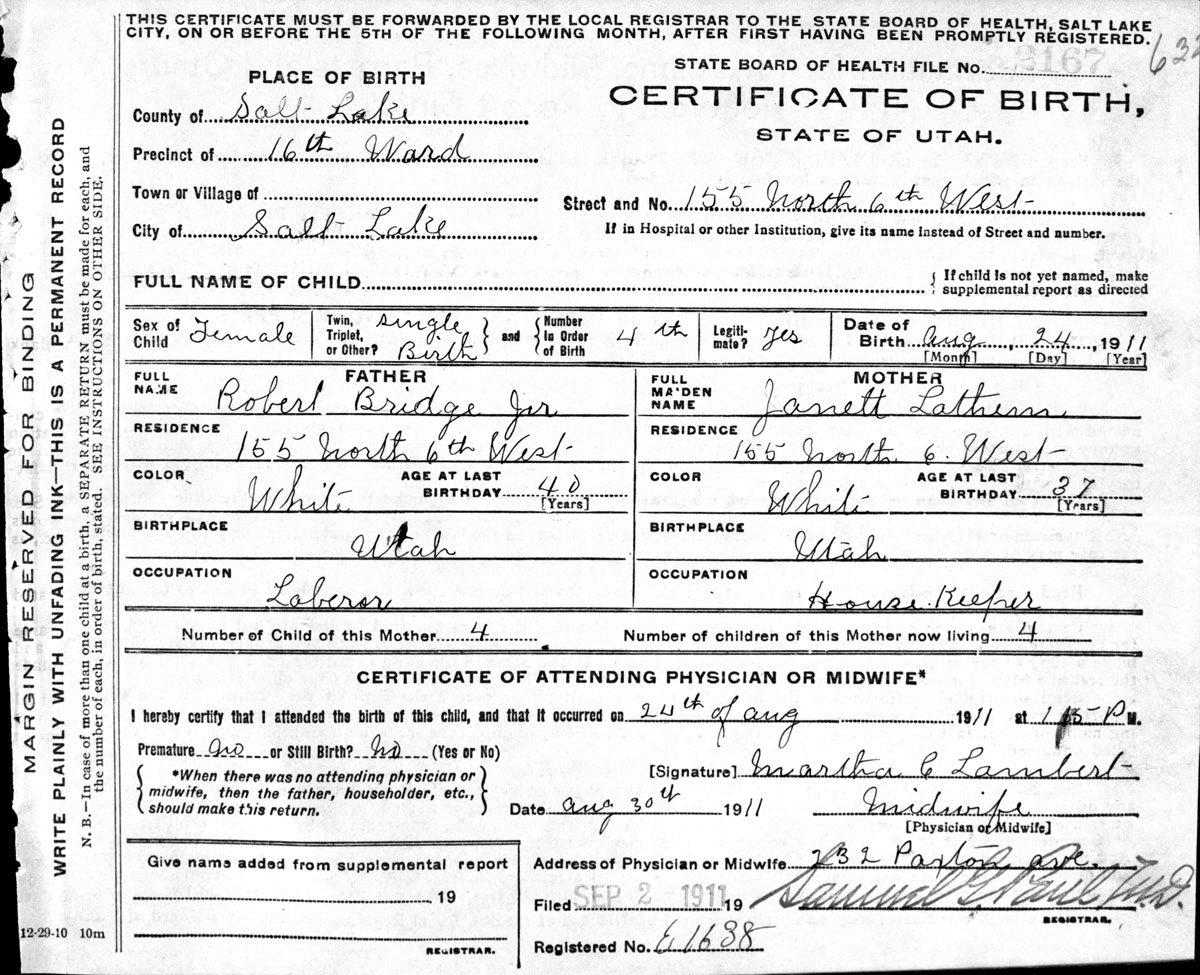 THIS CERTIFICATE MUST BE FORWARDED BY THE LOCAL REGISTRAR TO THE STATE BOARD OF HEALTH, SALT LAKE
CITY, ON OR BEFORE THE 5TH OF THE FOLLOWING MONTH, AFTER FIRST HAVING BEEN PROMPTLY REGISTERED.
632
PLACE OF BIRTH
STATE BOARD OF HEALTH FILE No.
County of Salt Lake
CERTIFICATE OF BIRTH,
STATE OF UTAH.
Precinct of 16th Ward
Town or Village of
Street and No. 155 North 6th West
City of Salt Lake
If in Hospital or other Institution, give its name instead of Street and number.
FULL NAME OF CHILD
{ If child is not yet named, make
supplemental report as directed
Sex of Child Female
Twin, Triplet, or Other? Single Birth } and { Number in Order of Birth 4th
Legitimate? Yes
Date of Birth Aug 24 1911
[Month] [Day] [Year]
FATHER
FULL NAME Robert Bridge Jnr
RESIDENCE
155 North 6th West
COLOR White AGE AT LAST BIRTHDAY 40
[Years]
BIRTHPLACE
Utah
OCCUPATION
Laberor
MOTHER
FULL MAIDEN NAME Janett Lathem
RESIDENCE
155 North 6. West
COLOR White AGE AT LAST BIRTHDAY 37
[Years]
BIRTHPLACE
Utah
OCCUPATION
House Keeper
Number of Child of this Mother 4 Number of children of this Mother now living 4
CERTIFICATE OF ATTENDING PHYSICIAN OR MIDWIFE*
I hereby certify that I attended the birth of this child, and that it occurred on 24th of Aug 1911 at P M.
Premature No or Still Birth? No (Yes or No)
{ *When there was no attending physician or
midwife, then the father, householder, etc.,
should make this return. }
[Signature] Martha C Lambert
Date Aug 30th 1911 Midwife
[Physician or Midwife]
Give name added from supplemental report
19
REGISTRAR.
Address of Physician or Midwife 232 Paxton Ave.
Filed SEP 2 1911 19 Samuel G Paul M.D.
REGISTRAR.
Registered No. E1638
12-29-10 10m
MARGIN RESERVED FOR BINDING
WRITE PLAINLY WITH UNFADING INK—THIS IS A PERMANENT RECORD
N. B.—In case of more than one child at a birth, a SEPARATE RETURN must be made for each, and
the number of each, in order of birth, stated. SEE INSTRUCTIONS ON OTHER SIDE.